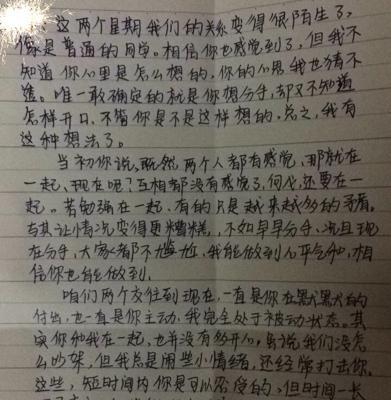 、这两个星期我们的关系变得很陌生了，
像是普通的同学。相信你也感觉到了，但我不
知道你心里是怎么想的，你的心思我也猜不
透。唯一敢确定的就是你想分手，却又不知道
怎样开口，不管你是不是这样想的，总之，我有
这种想法了。
当初你说，既然两个人都有感觉，那就在
一起，现在呢？互相都没有感觉了，何必还要在一
起。若勉强在一起，有的只是越来越多的矛盾，
与其让情况变得更糟糕，不如早早分手，况且现
在分手，大家都不尴尬，我能做到心平气和，相
信你也能做到。
咱们两个交往到现在，一直是你在默默的
付出，也一直是你主动，我完全处于被动状态。其
实你和我在一起，也并没有多开心，虽说我们没怎
么吵架，但我总是闹些小情绪，还经常打击你，
这些，短时间内你是可以忍受的，但时间一长